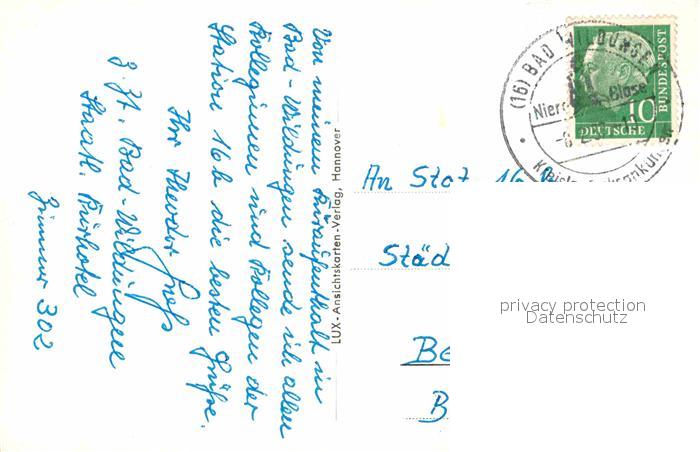 Von meinem Kuraufenthalt in
Bad-Wildungen sende ich allen
Kolleginnen und Kollegen der
Station 16h die besten Grüße.
Ihr Theodor
z. Zt. Bad-Wildungen
Staatl. Kurhotel
Zimmer 302
LUX-Ansichtskarten-Verlag, Hannover
(16) BAD WILDUNGEN
Blase
10
DEUTSCHE
BUNDESPOST
An Stat. 16
Städ
Be
B
privacy protection
Datenschutz